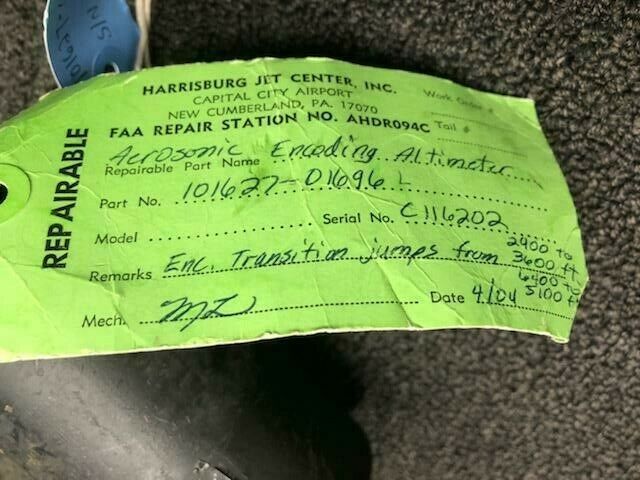 S/N
101627-
HARRISBURG JET CENTER, INC.
CAPITAL CITY AIRPORT
NEW CUMBERLAND, PA. 17070
Work Order #
FAA REPAIR STATION NO. AHDR094C Tail #
REPAIRABLE
Aerosonic Encoding Altimeter
Repairable Part Name
Part No. 101627-01696 L
Serial No. C116202
Model
Remarks Enc. Transition jumps from 2400 to
3600 ft
6400 to
5100 ft
Mech. Date 4/04